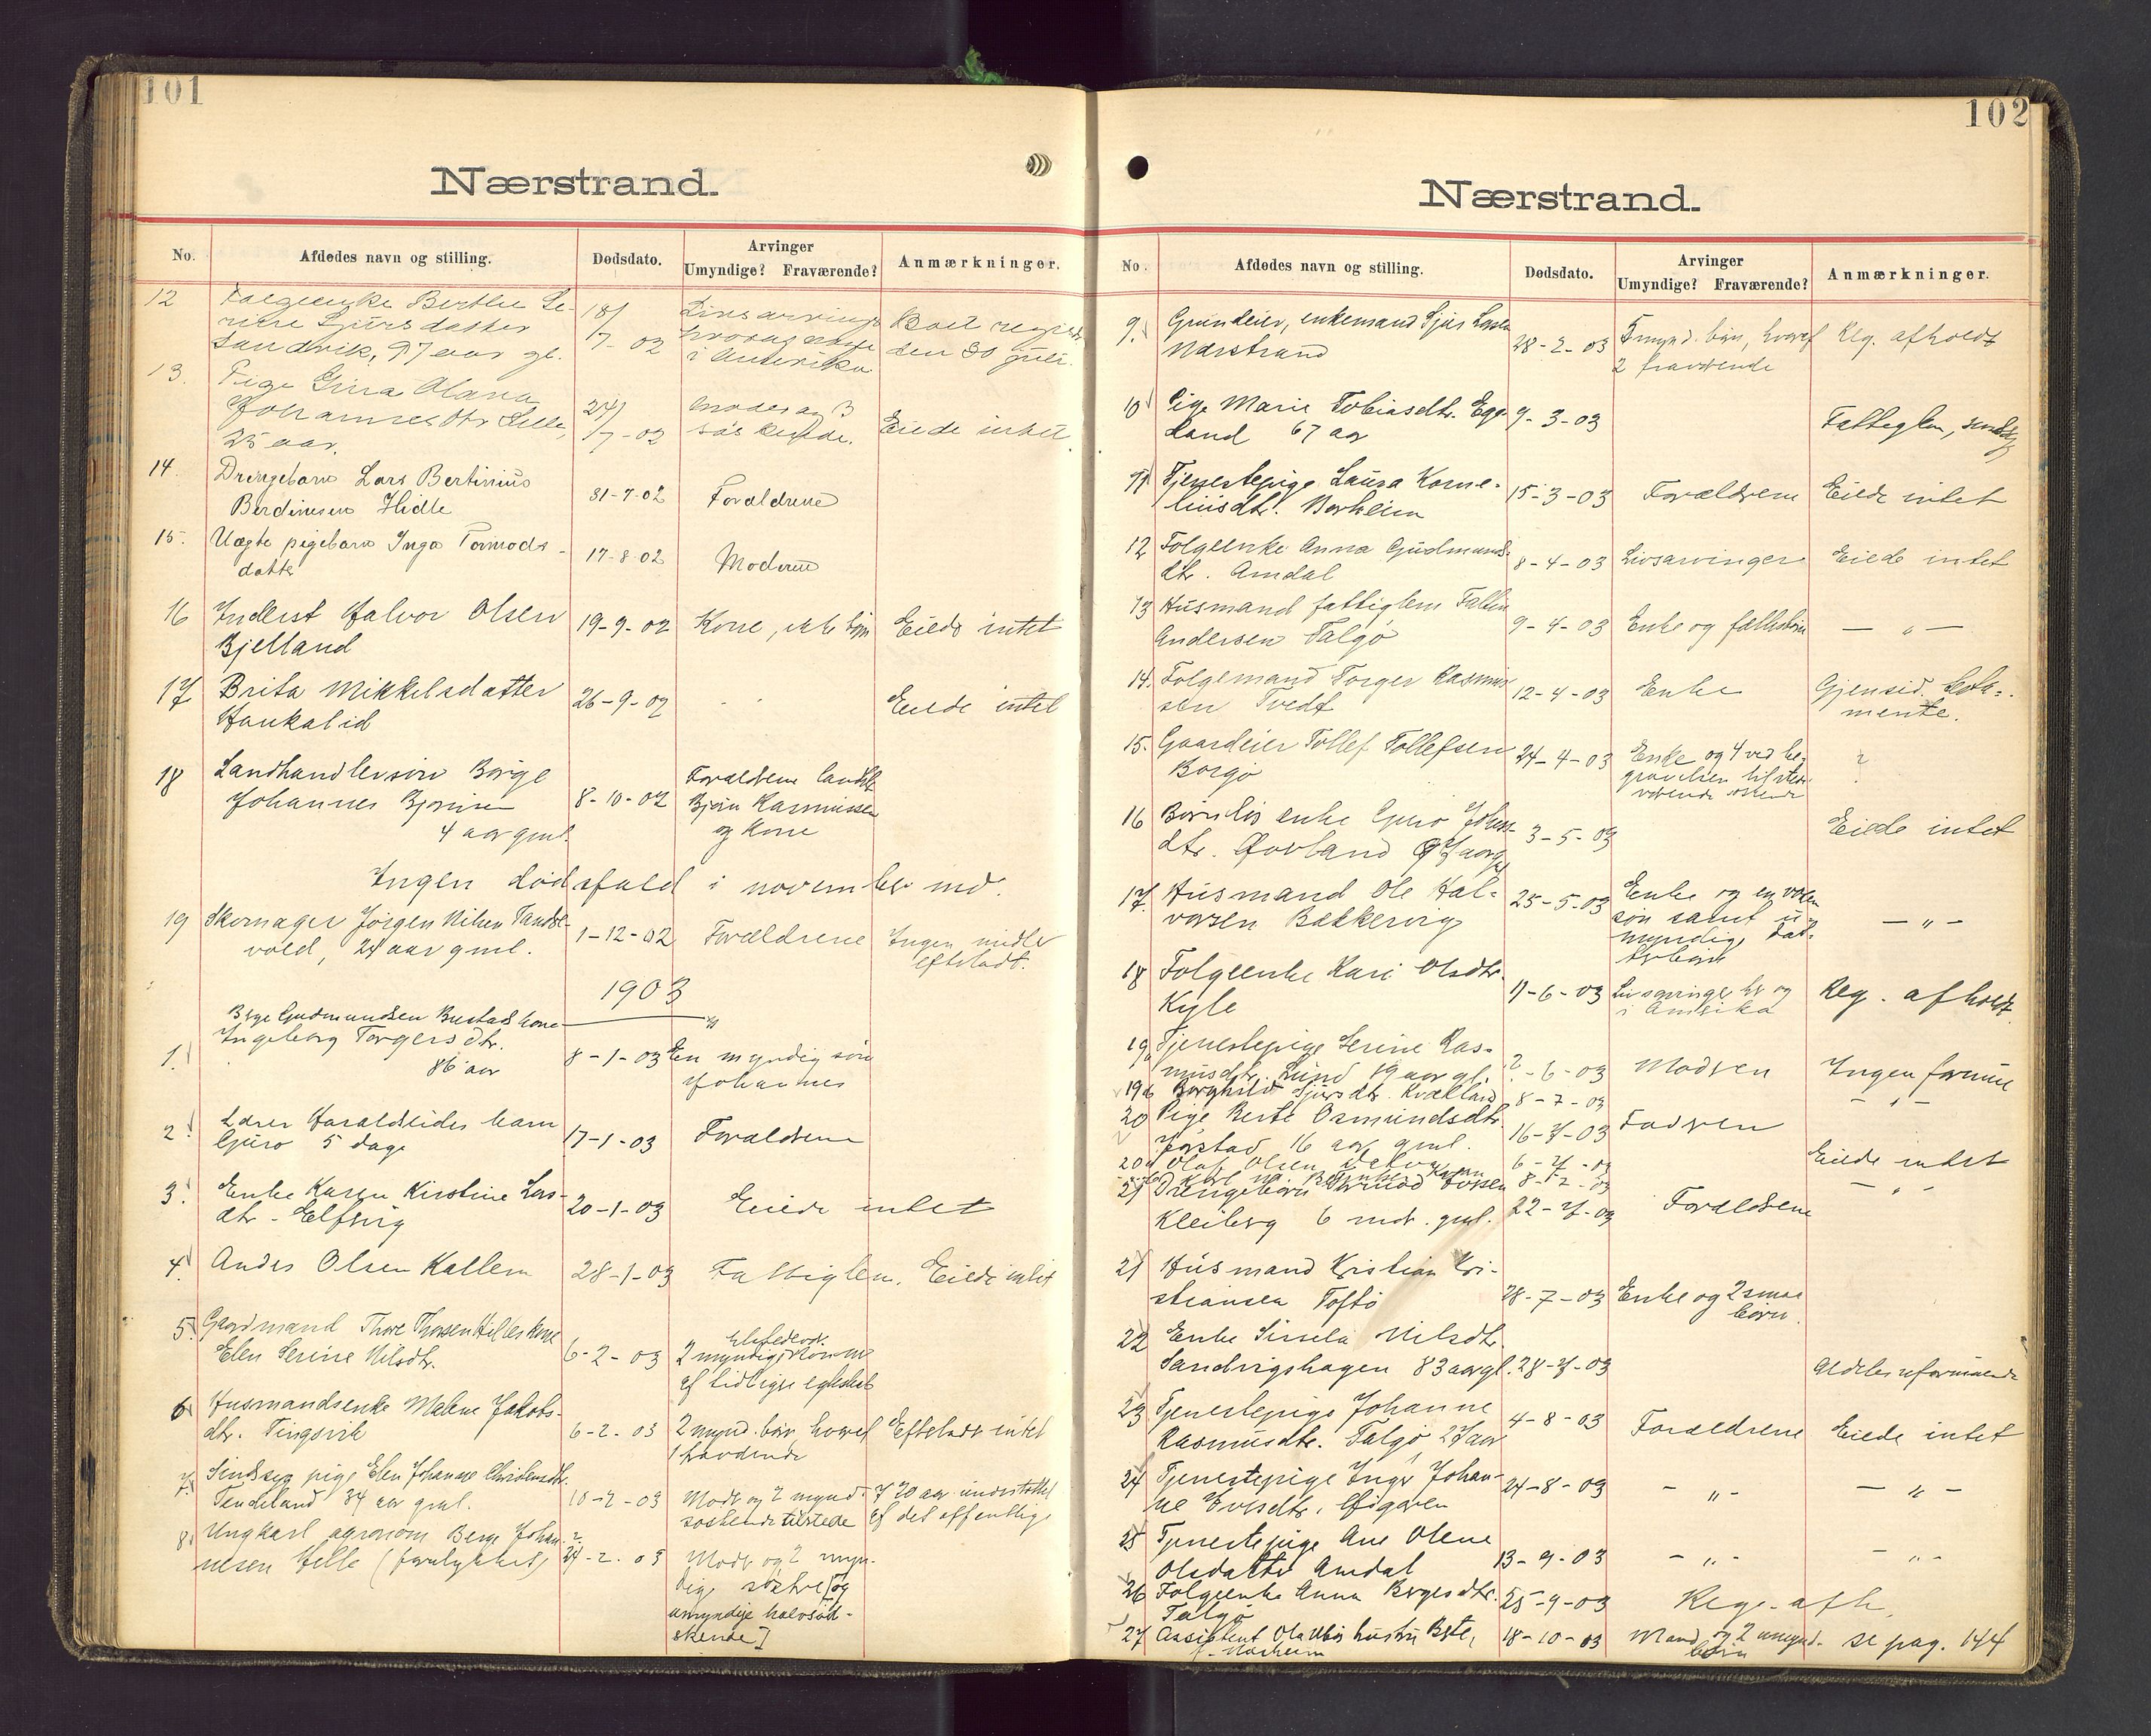 101
Nærstrand.
No.
Afdødes navn og stilling.
Dødsdato.
Arvinger
Umyndige? Fraværende?
Anmærkninger.
12
Folgeenke Berthe Se-
rine Sjursdatter
Sandvik, 97 aar gl.
18/
7 02
Livsarvinger
i Amerika
Boet regist.
den 30 juli.
13.
Pige Gina Olava
Johannesdtr
25 aar.
24/
7-02
Moder og 3
søskende.
Eiede intet
14.
Drengebarn Lars Bertinius
Berdinesen Hidle
31-7-02
Forældrene
15.
Uægte pigebarn Inga Tormods-
datter
17-8-02
Moderen
16
Inderst Halvor Olsen
Bjelland
19-9-02
Kone, ikke børn
Eiede intet
17
Brita Mikkelsdatter
Haukalid
26-9-02
Eiede intet
18
Landhandlersøn Børge
Johannes Bjørnsen
4 aar gml.
8-10-02
Forældrene landh.
Bjørn Rasmussen
og kone
Ingen dødsfald i november md.
19
Skomager Jørgen Nilsen
vold, 24 aar gml.
1-12-02
Forældrene
Ingen midler
efterladt.
1903
1.
Børge Gudmundsen Bustads kone
Ingeborg Torgersdtr.
86 aar
8-1-03
En myndig søn
Johannes
2.
Lærer Haraldseides barn
Guro 5 dage
17-1-03
Forældrene
3.
Enke Karen Kirstine Lars-
dtr. Elfsvig
20-1-03
Eiede intet
4.
Anders Olsen Kallem
28-1-03
Fattiglem. Eiede intet
5.
Gaardmand Thore Thorsen Hilles kone
Elen Serine Nilsdtr.
6-2-03
2 myndige
af tidligere egteskab
6
Husmandsenke Malene Jakobs-
dtr. Tingsvik
6-2-03
2 mynd. børn, hvoraf
1 fraværende
Efterlader intet
7.
Sindssyg pige Elen Johanne Christensdtr.
Tendeland 34 aar gml.
10-2-03
Moder og 2 mynd.
søskende tilstede
I 20 aar understøttet
af det offentlige
8.
Ungkarl agronom Børge Johan-
nesen Hille (forulykket)
?
24-2-03
Moder og 2 myn-
dige søstre [og
umyndige halvsød-
skende]
102
Nærstrand.
No.
Afdødes navn og stilling.
Dødsdato.
Arvinger
Umyndige? Fraværende?
Anmærkninger.
9.
Grundeier, enkemand Sjur Larsen
Nærstrand
28-2-03
5 mynd. børn, hvoraf
2 fraværende
Reg. afholdt
10
Pige Marie Tobiasdtr. Egge-
land 67 aar
9-3-03
Fattiglem, sindssyg
11
Tjenestepige Laura Korne-
liusdtr. Borheim
15-3-03
Forældrene
Eiede intet
12
Folgeenke Anna Gudmunds-
dtr. Amdal
8-4-03
Livsarvinger
Eiede intet
13
Husmand fattiglem Fallin
Andersen Talgø
9-4-03
Enke og fællesbørn
— " —
14.
Folgemand Torger Rasmus-
sen Tvedt
12-4-03
Enke
Gjensid. testa-
mente.
15.
Gaardeier Tollef Tollefsen
Borgø
24-4-03
Enke og 4 ved be-
gravelsen tilstede-
værende søskende
?
16
Barnløs enke Guro Johns-
dtr. Øvland
3-5-03
Eiede intet
17.
Husmand Ole Hal-
vorsen Bakkevig
25-5-03
Enke og en voksen
søn samt u-
myndige dat-
terbørn
— " —
18
Folgeenke Kari Olsdtr.
Kyle
9-6-03
Livsarvinger her og
i Amerika
Reg. afholdt
19
Tjenestepige Serine Ras-
musdtr. Lund 19 aar gl.
?-6-03
Modren
Ingen formue
19a
Borghild Sjursdtr. Kvalland
8-7-03
— " —
20
Pige Berte Osmundsdtr.
Jørstad 16 aar gml.
16-7-03
Fadren
20a
Olaf Olsen
6-7-03
Eiede intet
8-12-03
— " —
21
Drengebarn Tormod Iversen
Kleiberg 6 mdr. gml.
22-7-03
Forældrene
21
Husmand Kristian Kri-
stiansen Toftø
28-7-03
Enke og 2 smaa
børn.
22
Enke Sissela Nilsdtr.
Sandvigshagen 83 aar gl.
28-7-03
Aldeles uformuende
23
Tjenestepige Johanne
Rasmusdtr. Talgø, 27 aar
4-8-03
Forældrene
Eiede intet
24
Tjenestepige Inger Johan-
ne Eversdtr. Øigaren
24-8-03
- " -
— " —
25
Tjenestepige Ane Olene
Olsdatter Amdal
13-9-03
- " -
- " -
26
Folgeenke Anna Børgesdtr.
Talgø
25-9-03
Rege. afh.
27
Assistent Ola Vbøs hustru Bste,
f. Norheim
18-10-03
Mand og 2 umynd.
børn
se pag. 144